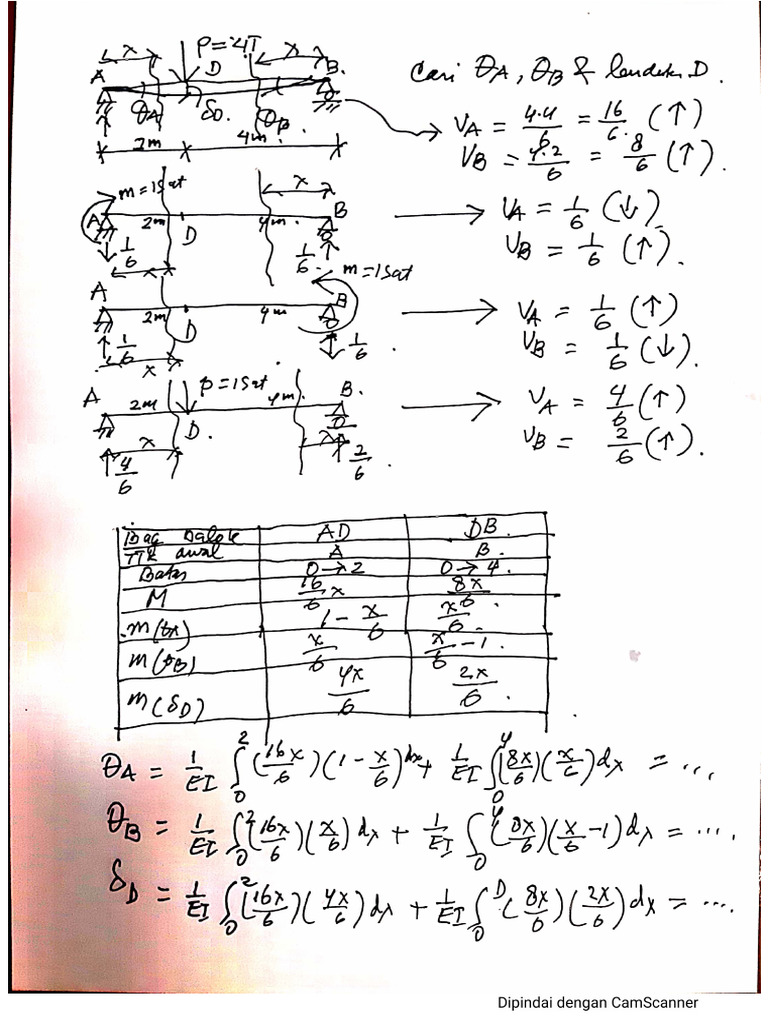 P = 4T
x
x
A
D
B.
θA
δD
θB
2m
4m
Cari θA, θB & lendutan D.
VA = 4.4/6 = 16/6. (↑)
VB = 4.2/6 = 8/6 (↑)
m=1sat
x
A
2m
D
4m.
B
↓ 1/6
1/6. ↑
x
VA = 1/6 (↓)
VB = 1/6 (↑).
m=1sat
A
2m
D
4m
B
↑ 1/6
↓ 1/6
x
VA = 1/6 (↑)
VB = 1/6 (↓).
P=1sat
A
2m
D.
4m.
B.
x
x
↑ 4/6
↑ 2/6.
VA = 4/6 (↑)
VB = 2/6 (↑).
Bag Balok AD DB.
Ttk awal A B.
Batas 0→2 0→4.
M 16/6 x 8x/6
m(θA) 1 - x/6 x/6.
m(θB) x/6 x/6 - 1.
m(δD) 4x/6 2x/6.
θA = 1/EI ∫₀² (16x/6)(1 - x/6) dx + 1/EI ∫₀⁴ (8x/6)(x/6) dx = ...
θB = 1/EI ∫₀² (16x/6)(x/6) dx + 1/EI ∫₀⁴ (8x/6)(x/6 - 1) dx = ....
δD = 1/EI ∫₀² (16x/6)(4x/6) dx + 1/EI ∫₀ᴰ (8x/6)(2x/6) dx = ....
Dipindai dengan CamScanner